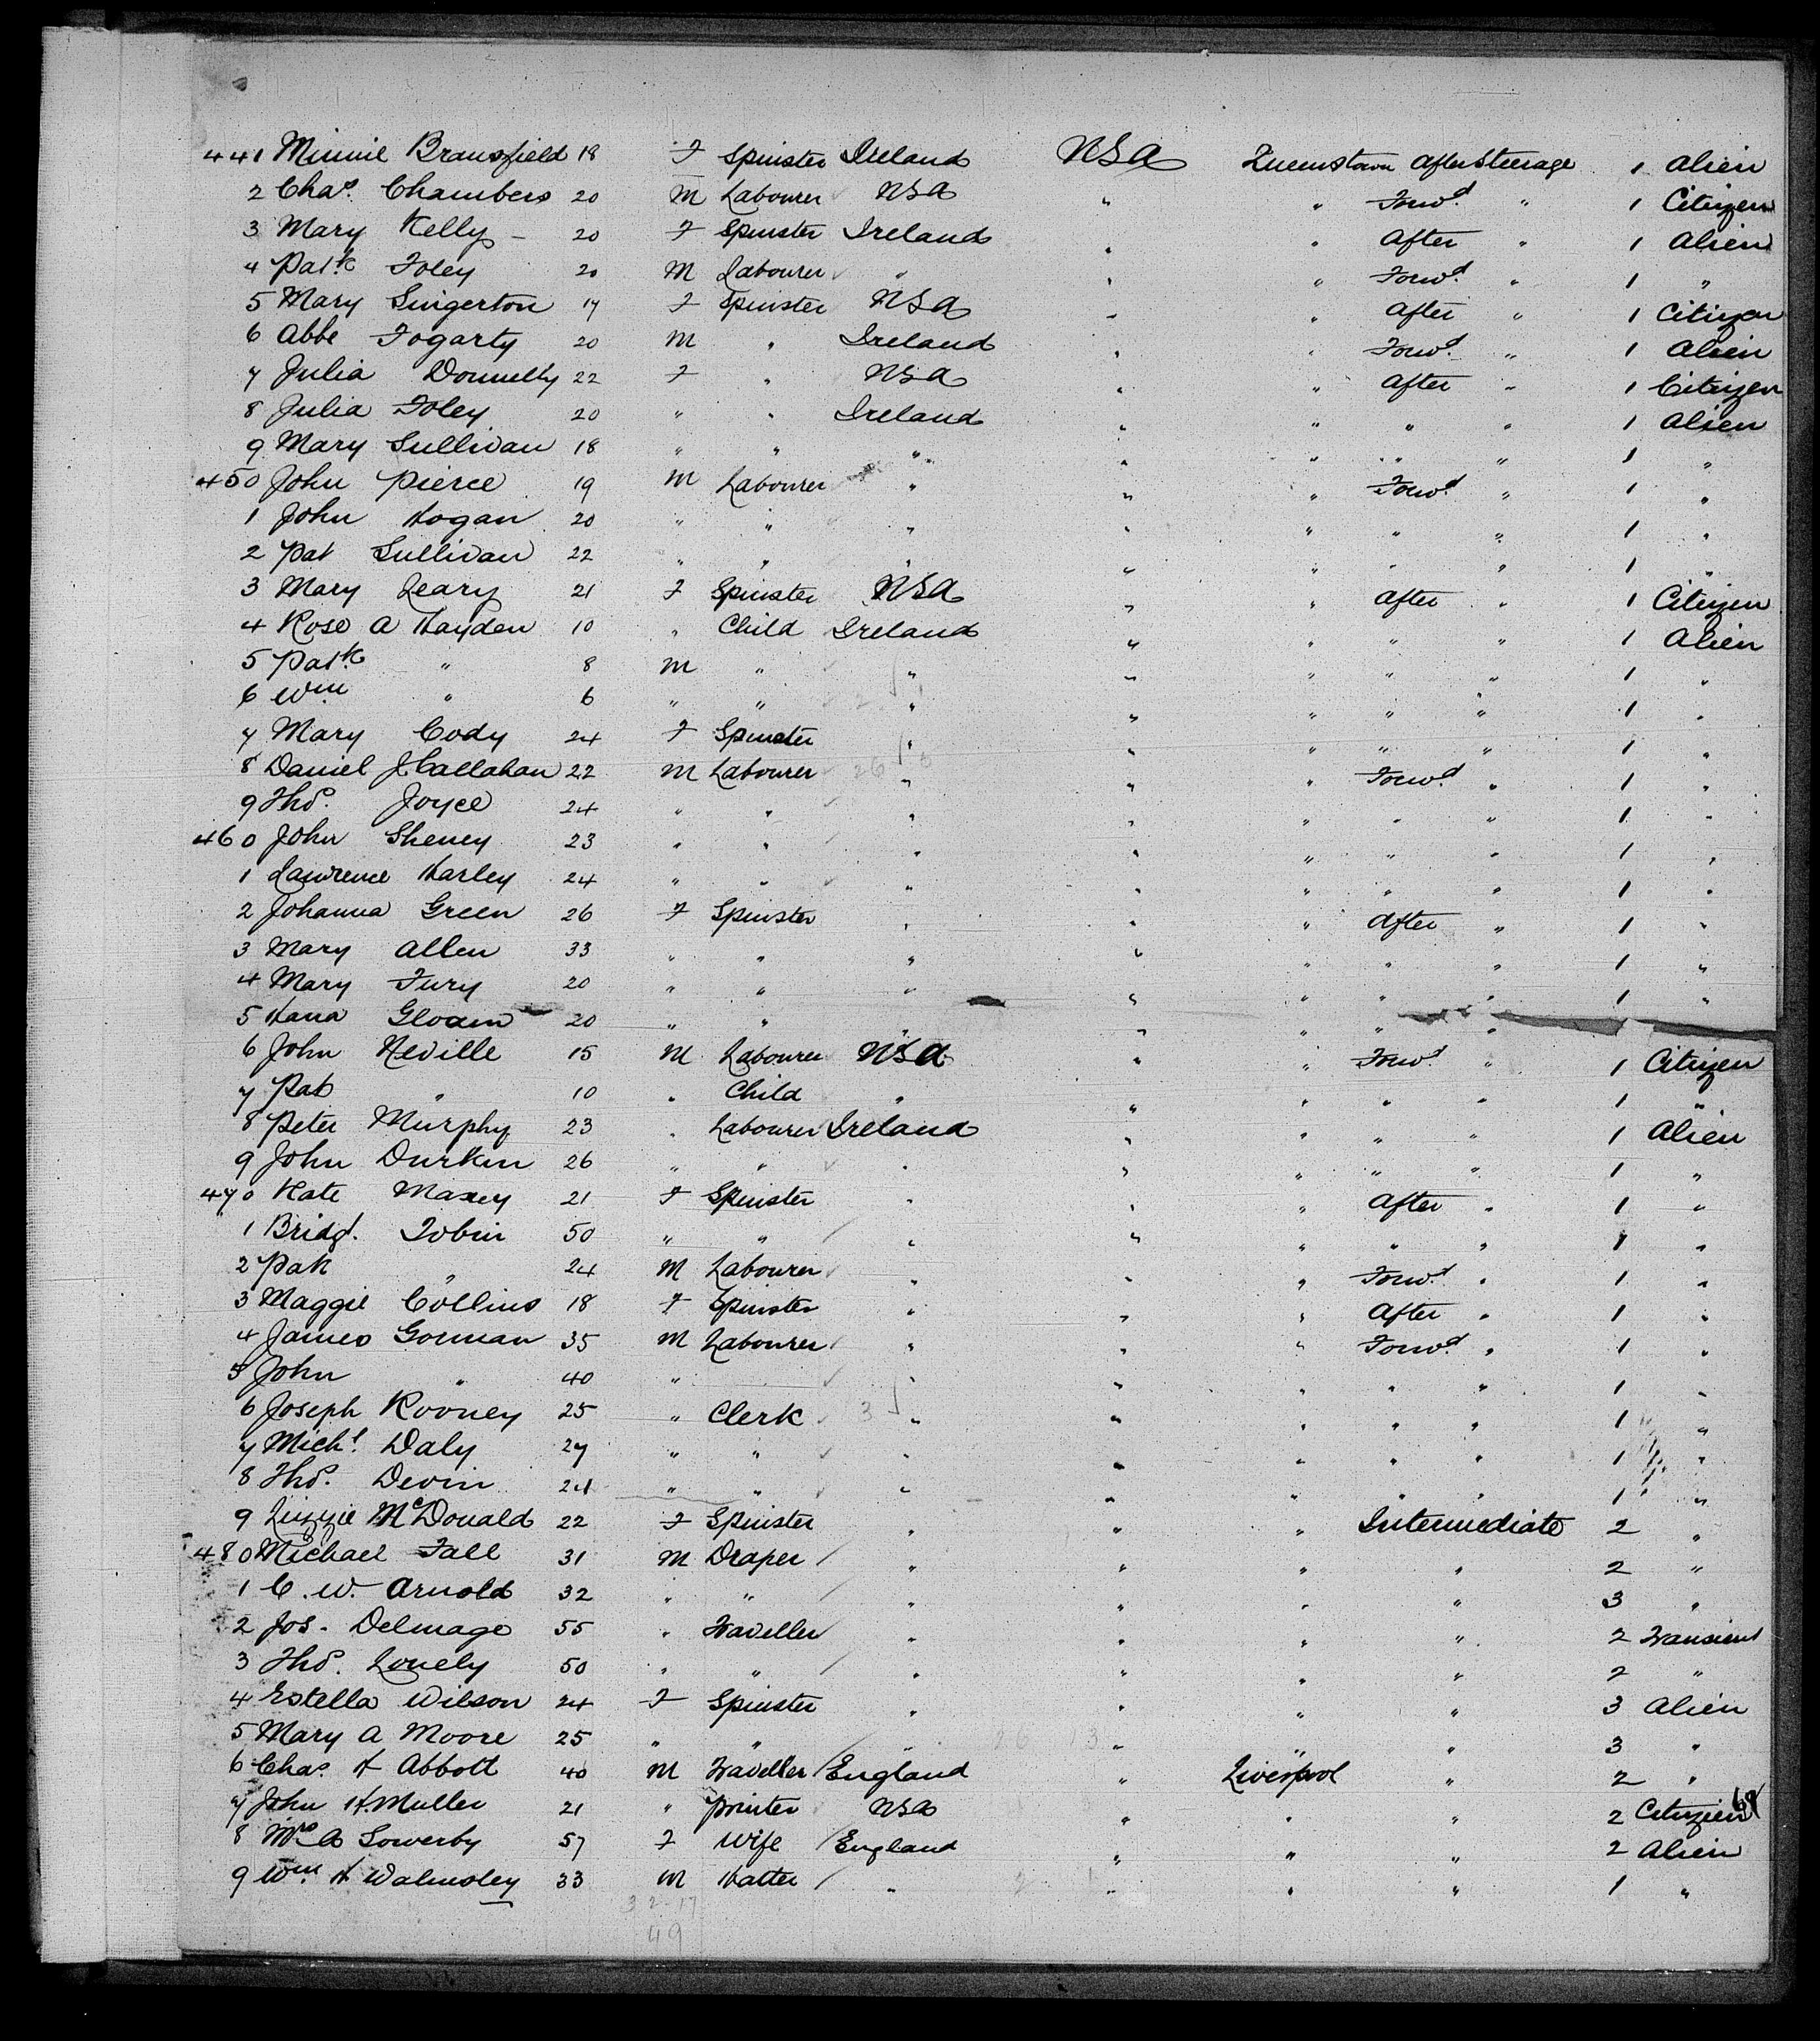 441 Minnie Bransfield 18 F Spinster Ireland USA Queenstown After Steerage 1 Alien
2 Chas. Chambers 20 M Labourer USA " " Forwd. " 1 Citizen
3 Mary Kelly - 20 F Spinster Ireland " " After " 1 Alien
4 Patk. Foley 20 M Labourer " " " Forwd. " 1 "
5 Mary Singerton 17 F Spinster USA " " After " 1 Citizen
6 Abbe Fogarty 20 M " Ireland " " Forwd. " 1 Alien
7 Julia Donnelly 22 F " USA " " After " 1 Citizen
8 Julia Foley 20 " " Ireland " " " " 1 Alien
9 Mary Sullivan 18 " " " " " " " 1 "
450 John Pierce 19 M Labourer " " " Forwd. " 1 "
1 John Hogan 20 " " " " " " " 1 "
2 Pat Sullivan 22 " " " " " " " 1 "
3 Mary Leary 21 F Spinster USA " " After " 1 Citizen
4 Rose A Hayden 10 " Child Ireland " " " " 1 Alien
5 Patk. " 8 M " " " " " " 1 "
6 Wm " 6 " " " " " " " 1 "
7 Mary Cody 24 F Spinster " " " " " 1 "
8 Daniel J. Callahan 22 M Labourer " " " Forwd. " 1 "
9 Thos. Joyce 24 " " " " " " " 1 "
460 John Sheney 23 " " " " " " " 1 "
1 Lawrence Harley 24 " " " " " " " 1 "
2 Johanna Green 26 F Spinster " " " After " 1 "
3 Mary Allen 33 " " " " " " " 1 "
4 Mary Fury 20 " " " " " " " 1 "
5 Hana 20 " " " " " " "
6 John Neville 15 M Labourer USA " " Forwd. " 1 Citizen
7 Pat " 10 " Child " " " " " 1 "
8 Peter Murphy 23 " Labourer Ireland " " " " 1 Alien
9 John Durkin 26 " " " " " " " 1 "
470 Kate Maxey 21 F Spinster " " " After " 1 "
1 Bridgt. Tobin 50 " " " " " " " 1 "
2 Patk " 24 M Labourer " " " Forwd. " 1 "
3 Maggie Collins 18 F Spinster " " " After " 1 "
4 James Gorman 35 M Labourer " " " Forwd. " 1 "
5 John " 40 " " " " " " 1 "
6 Joseph Rooney 25 " Clerk " " " " " 1 "
7 Michl. Daly 27 " " " " " " " 1 "
8 Thos. Devin 24 " " " " " " " 1 "
9 Lizzie McDonald 22 F Spinster " " " Intermediate 2 "
480 Michael Fall 31 M Draper " " " " 2 "
1 C. W. Arnold 32 " " " " " " 3 "
2 Jos. Delmage 55 " Traveller " " " " 2 Transient
3 Thos. Lonely 50 " " " " " " 2 "
4 Estella Wilson 24 F Spinster " " " " 3 Alien
5 Mary A Moore 25 " " " " " " 3 "
6 Chas. H Abbott 40 M Traveller England " Liverpool " 2 "
7 John H. Muller 21 " Printer USA " " " 2 Citizen
8 Mrs A Sowerby 57 F Wife England " " " 2 Alien
9 Wm. H Walmsley 33 M Hatter " " " " 1 "
32-17
49